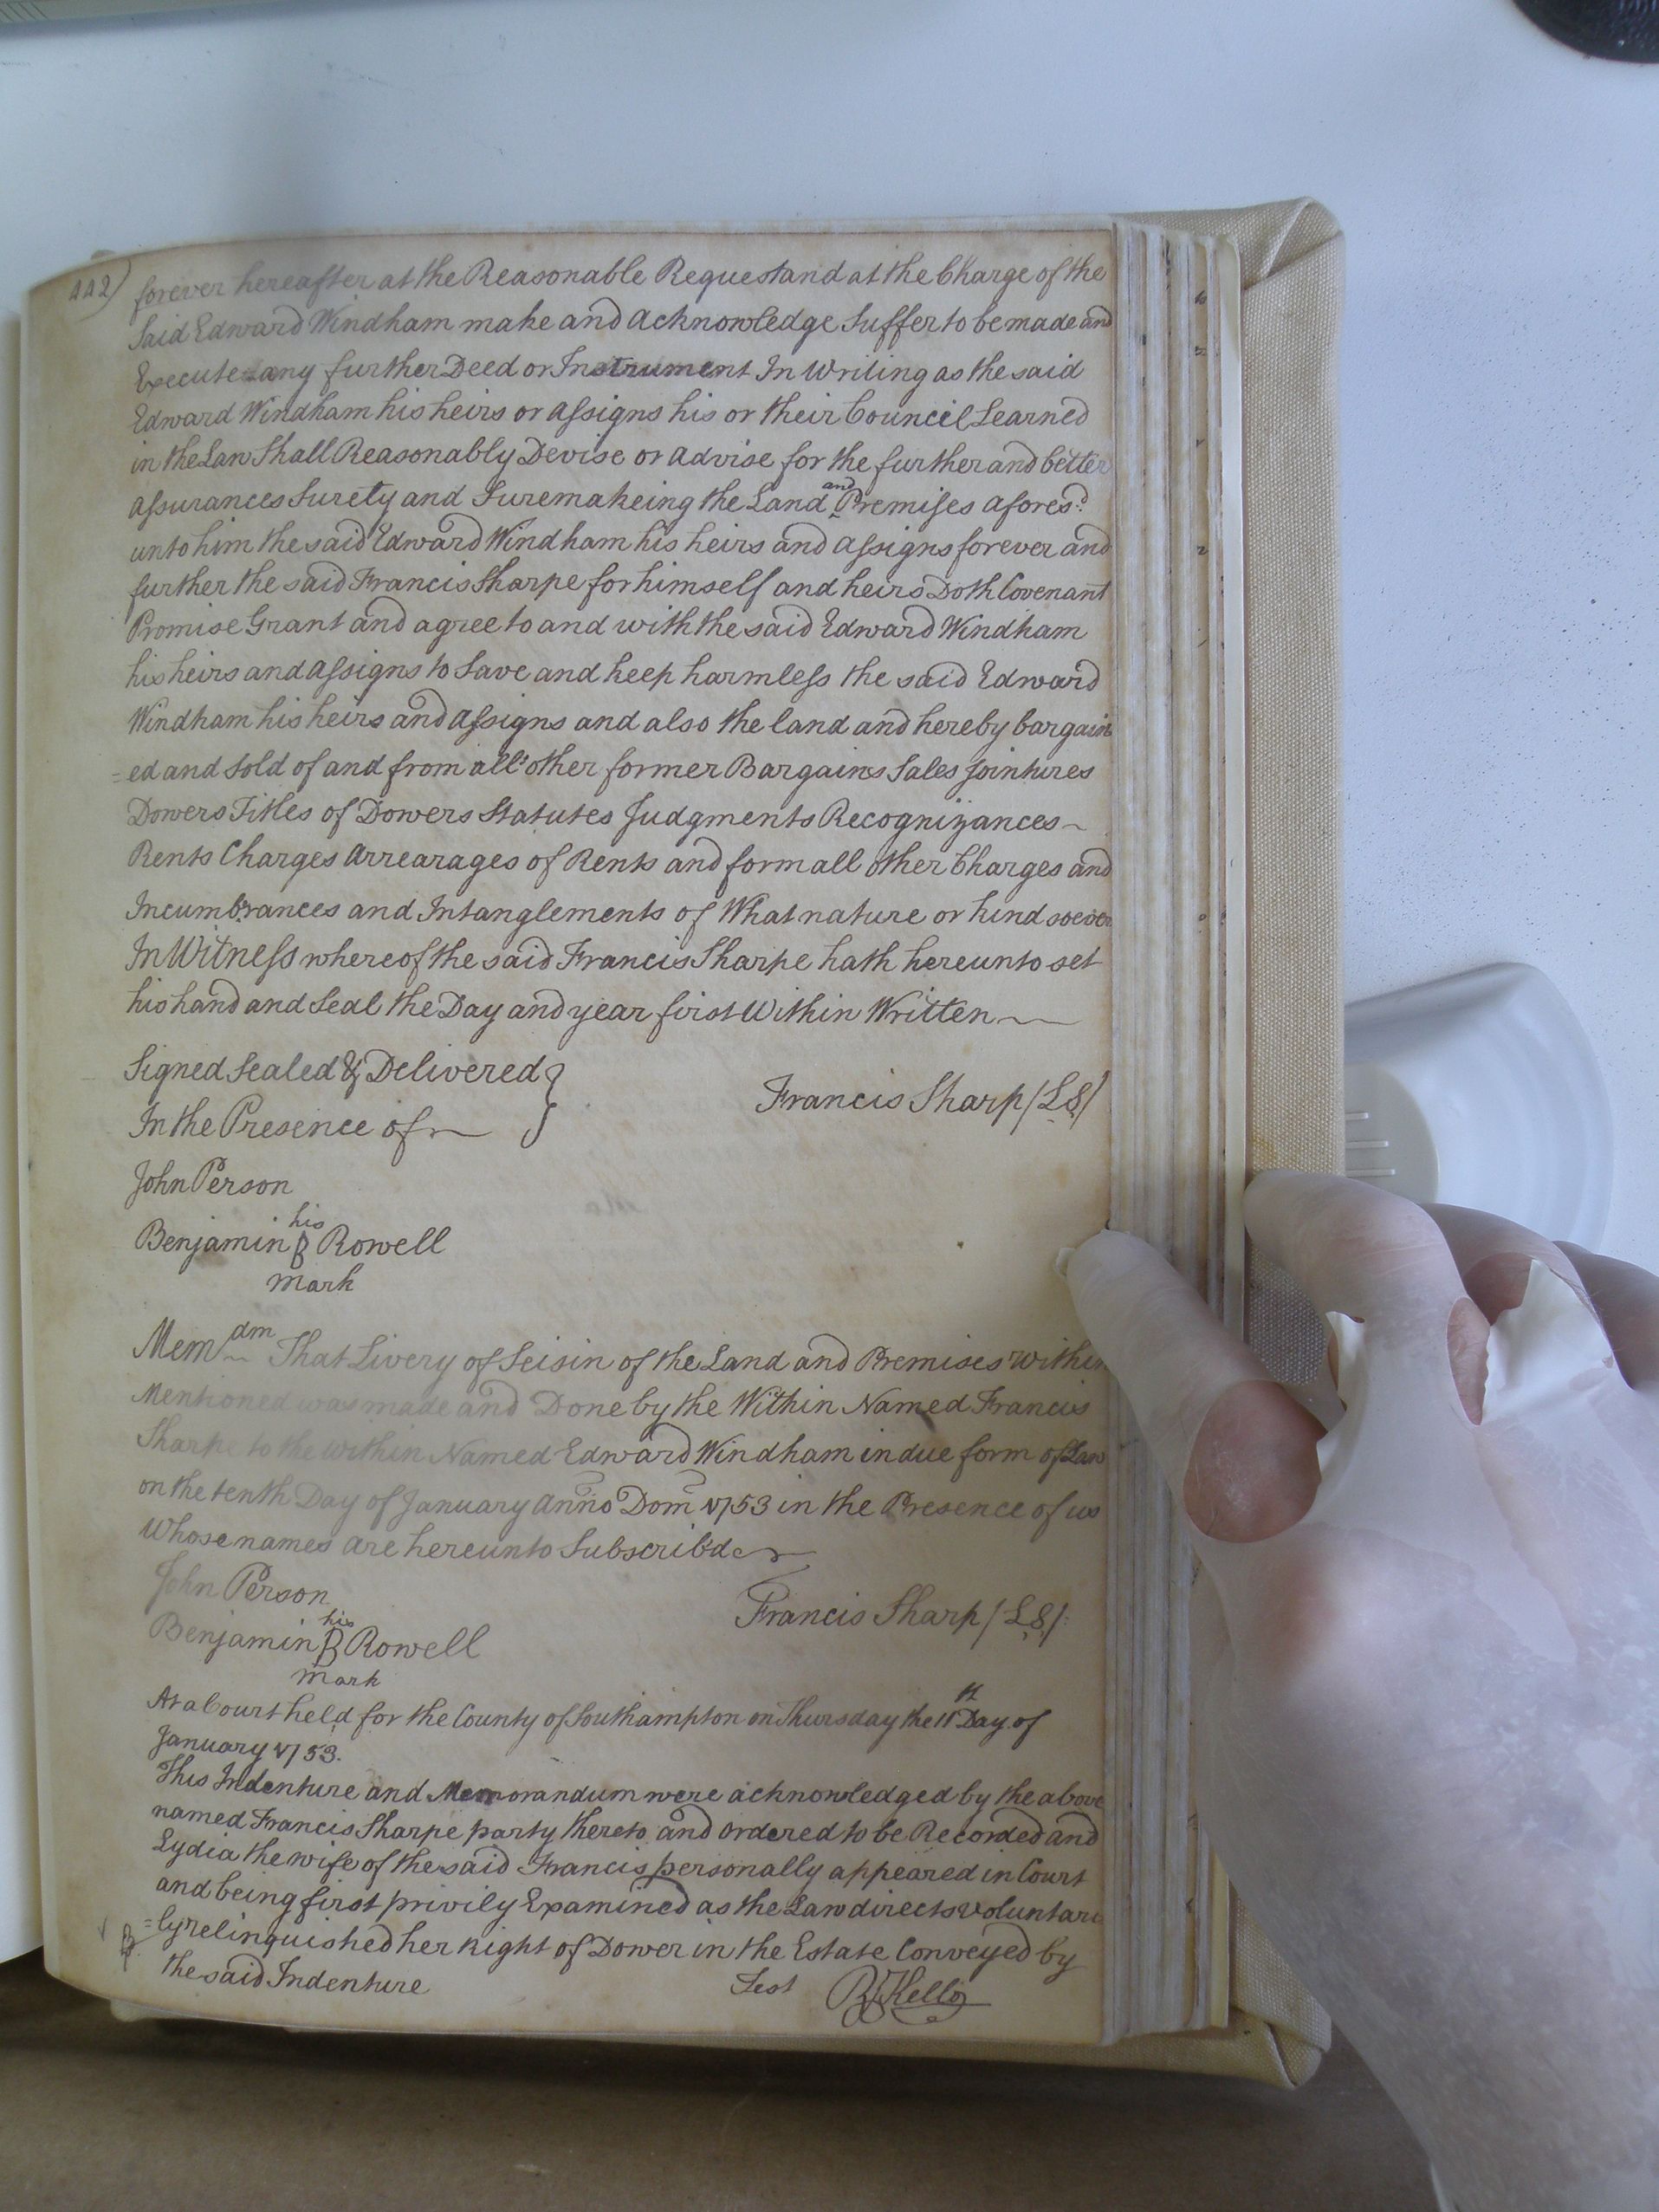 442) forever hereafter at the Reasonable Request and at the Charge of the
Said Edward Windham make and acknowledge Suffer to be made and
Execute any further Deed or Instrument In Writing as the said
Edward Windham his heirs or assigns his or their Council Learned
in the Law Shall Reasonably Devise or advise for the further and better
assurances Surety and Suremakeing the Land and Premises afores.d
unto him the said Edward Windham his heirs and assigns forever and
further the said Francis Sharpe for himself and heirs Doth Covenant
Promise Grant and agree to and with the said Edward Windham
his heirs and assigns to Save and keep harmless the said Edward
Windham his heirs and assigns and also the land and hereby bargain
=ed and sold of and from all other former Bargains Sales Jointures
Dowers Titles of Dowers Statutes Judgments Recognizances
Rents Charges Arrearages of Rents and form all other Charges and
Incumbrances and Intanglements of What nature or kind soever
In Witness whereof the said Francis Sharpe hath hereunto set
his hand and Seal the Day and year first Within Written
Signed Sealed & Delivered }
In the Presence of
Francis Sharp (LS)
John Person
his
Benjamin B Rowell
mark
Mem dm That Livery of Seisin of the Land and Premises within
Mentioned was made and Done by the Within Named Francis
Sharpe to the within Named Edward Windham in due form of Law
on the tenth Day of January Anno Dom 1753 in the Presence of us
Whose names are hereunto Subscrib'd
John Person
Francis Sharp (LS)
his
Benjamin B Rowell
mark
At a Court held for the County of Southampton on Thursday the 11th Day of
January 1753.
This Indenture and Memorandum were acknowledged by the above
named Francis Sharpe party thereto and ordered to be Recorded and
Lydia the wife of the said Francis personally appeared in Court
and being first privily Examined as the Law directs voluntari
=ly relinquished her Right of Dower in the Estate Conveyed by
the said Indenture
Test R Kello